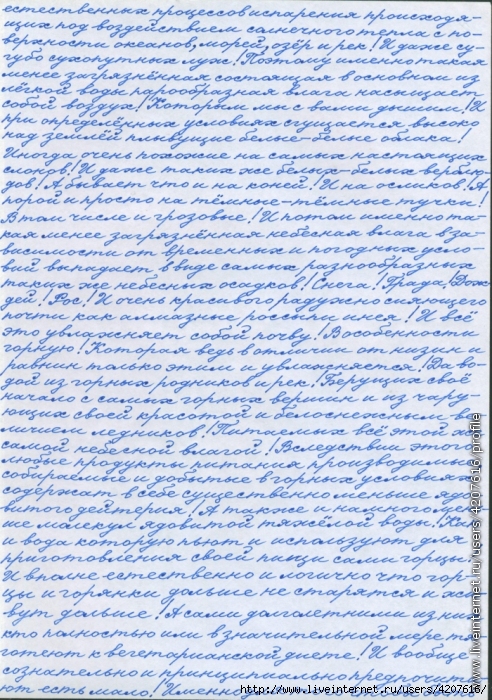 естественных процессов испарения происходя-
щих под воздействием солнечного тепла с по-
верхности океанов, морей, озёр и рек! И даже су-
губо сухопутных луж! Поэтому именно такая
менее загрязнённая состоящая в основном из
лёгкой воды парообразная влага насыщает
собой воздух! Которым мы с вами дышим! И
при определённых условиях сгущается высоко
над землёй плывущие белые-белые облака!
Иногда очень похожие на самых настоящих
слонов! И даже таких же белых-белых верблю-
дов! А бывает что и на коней! И на осликов! А
порой и просто на тёмные-тёмные тучки!
В том числе и грозовые! И потом именно та-
кая менее загрязнённая небесная влага в за-
висимости от временных и погодных усло-
вий выпадает в виде самых разнообразных
таких же небесных осадков! Снега! Града! Дож-
дей! Рос! И очень красивого радужно сияющего
почти как алмазные россыпи инея! И всё
это увлажняет собой почву! В особенности
горную! Которая ведь в отличии от низин и
равнин только этим и увлажняется! Да во-
дой из горных родников и рек! Берущих своё
начало с самых горных вершин и из чару-
ющих своей красотой и белоснежным ве-
личием ледников! Питаемых всё этой же
самой небесной влагой! Вследствии этого
любые продукты питания производимые
собираемые и добытые в горных условиях
содержат в себе существенно меньше ядо-
витого дейтерия! А также и намного мень-
ше малекул ядовитой тяжёлой воды! Как
и вода которую пьют и используют для
приготовления своей пищи сами горцы!
И вполне естественно и логично что гор-
цы и горянки дольше не старятся и жи-
вут дольше! А самые долголетними из них
кто полностью или в значительной мере тя-
готеют к вегетарианской диете! И вообще
сознательно и принципиально предпочитают
не есть мясо!
www.liveinternet.ru/users/4207616/profile
http://www.liveinternet.ru/users/4207616//